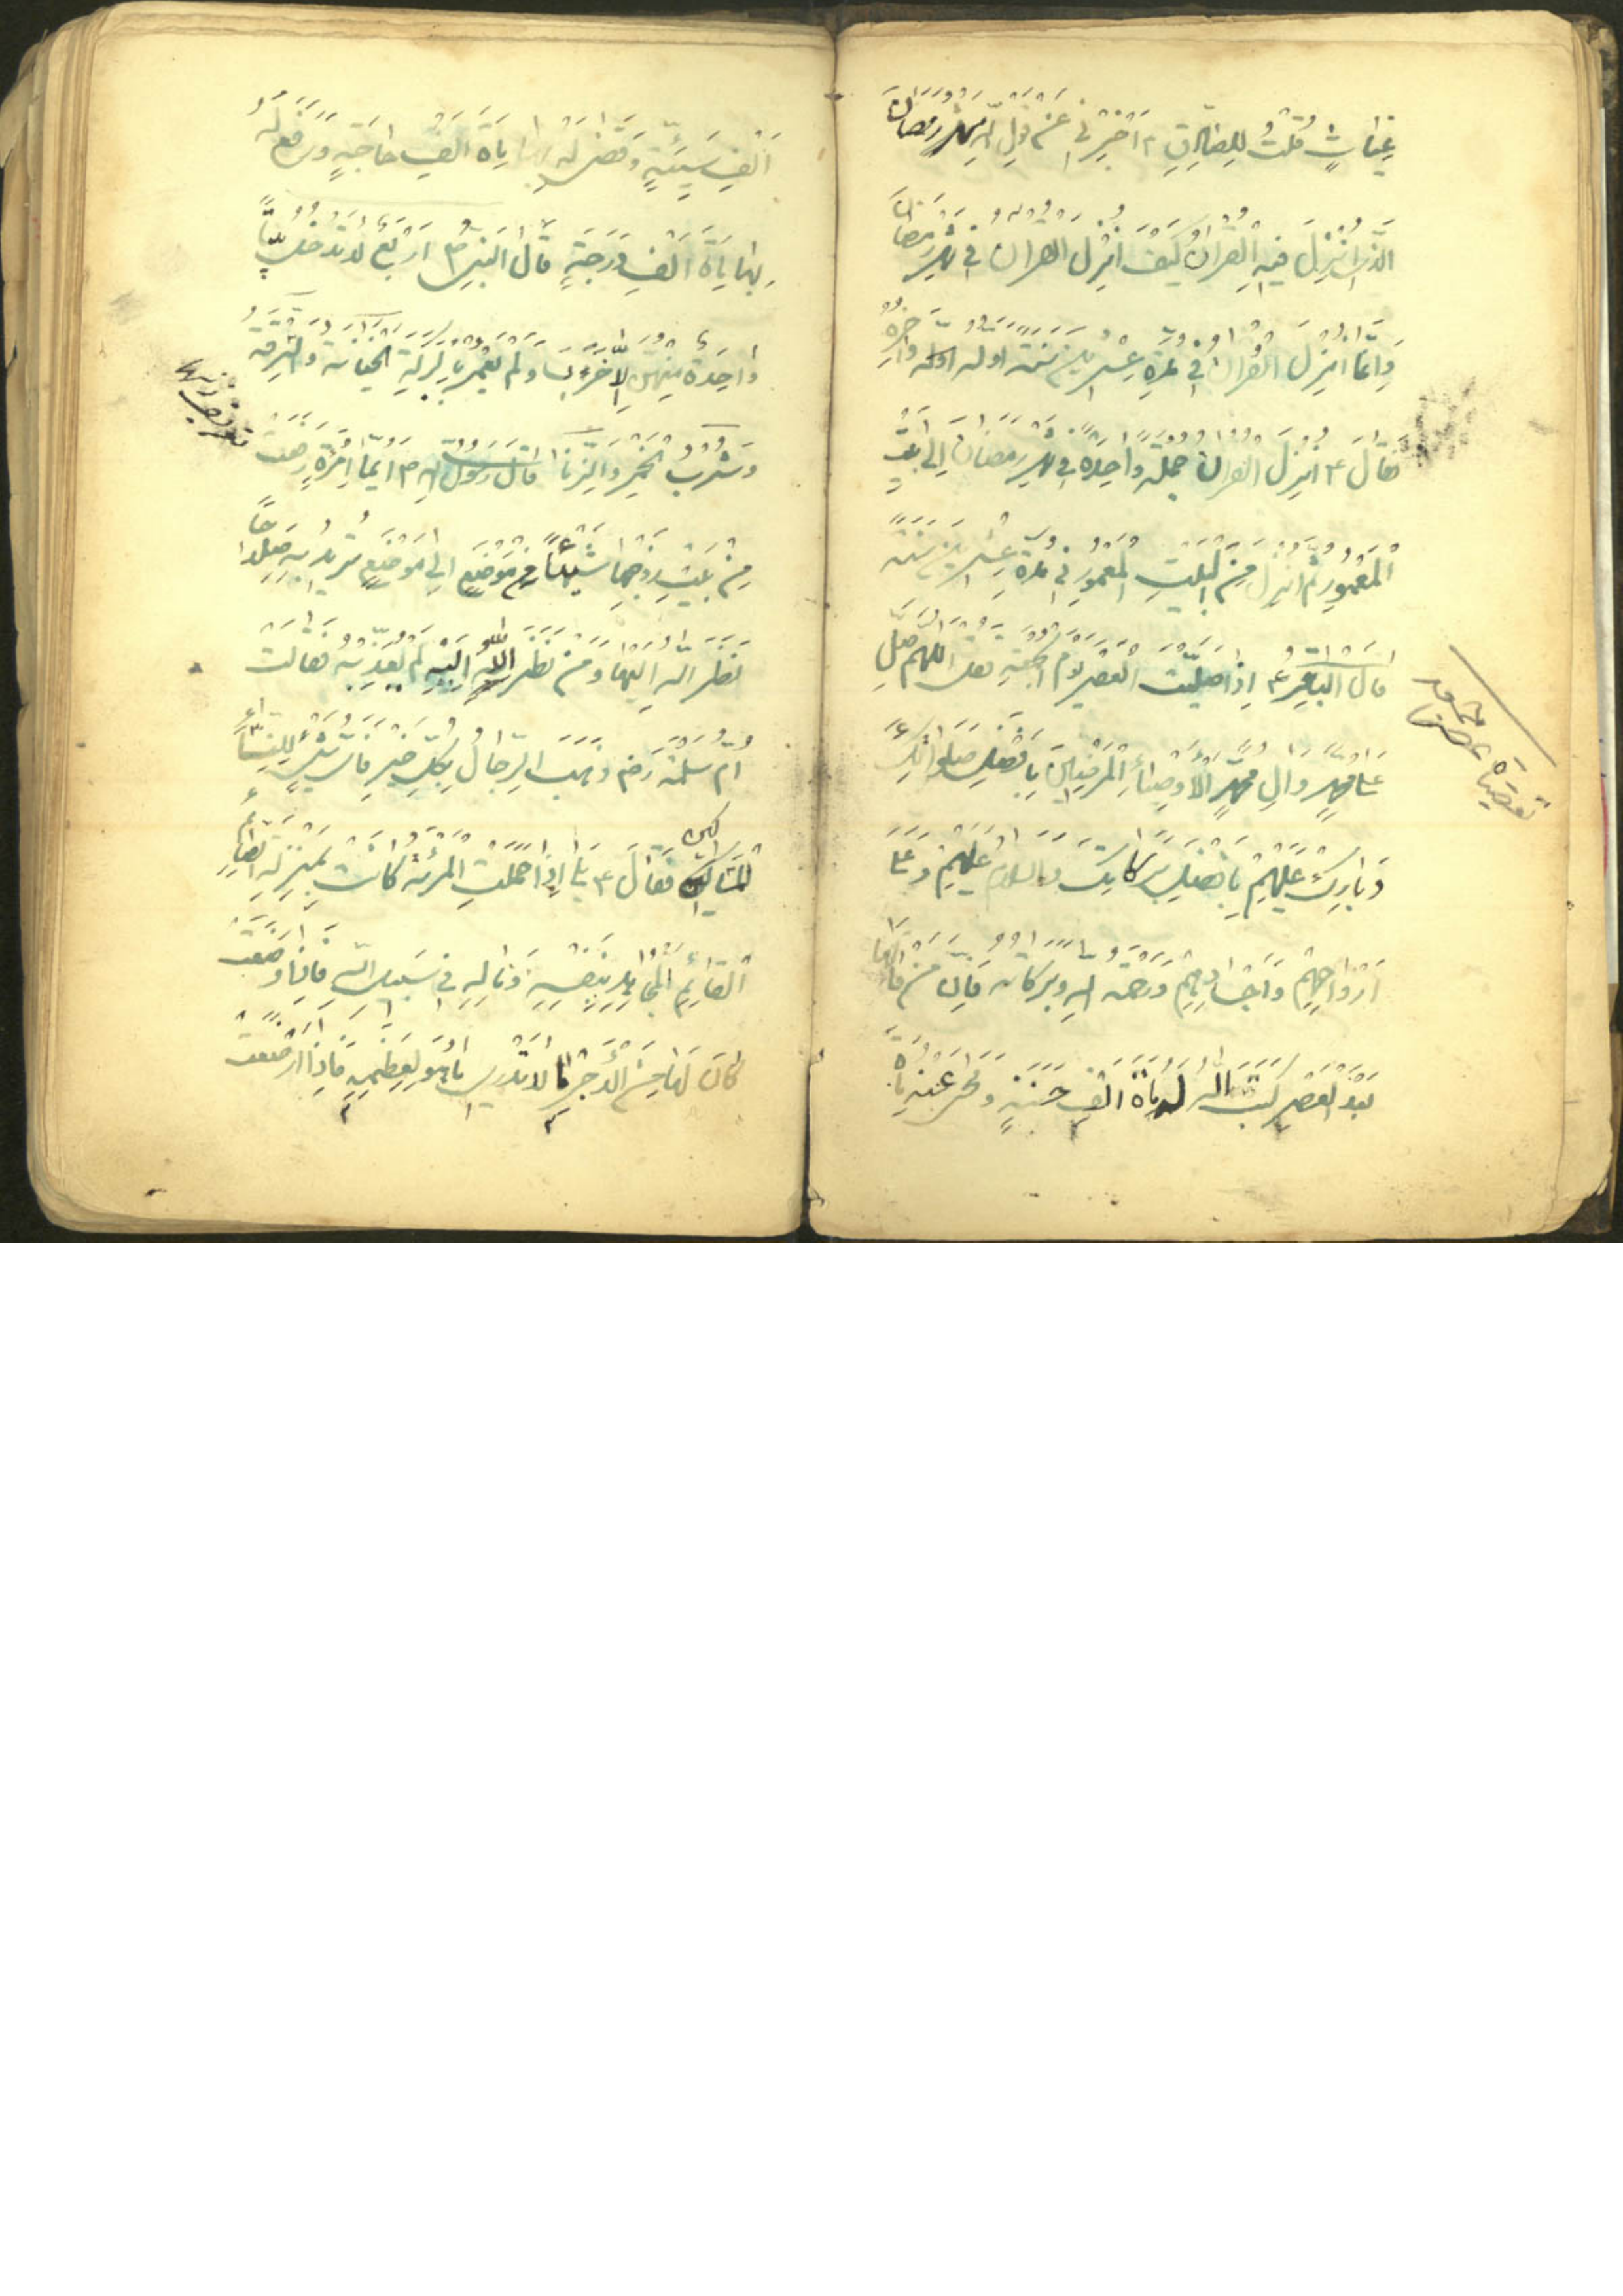 غِيَاثٍ قُلْتُ لِلصَّادِقِ ع اَخْبِرْنِي عَنْ قَوْلِ اللّهِ شَهْرُ رَمَضَانَ
الَّذِي اُنْزِلَ فِيهِ الْقُرْاٰنُ كَيْفَ اُنْزِلَ الْقُرْاٰنُ فِي شَهْرِ رَمَضَانَ
وَاِنَّمَا اُنْزِلَ الْقُرْاٰنُ فِي مُدَّةِ عِشْرِينَ سَنَةً اوله وَاٰخِرُهُ
فَقَالَ ع اُنْزِلَ الْقُرْاٰنُ جُمْلَةً وَاحِدَةً فِي شَهْرِ رَمَضَانَ اِلَى الْبَيْتِ
الْمَعْمُورِ ثُمَّ اُنْزِلَ مِنَ الْبَيْتِ الْمَعْمُورِ فِي مُدَّةِ عِشْرِينَ سَنَةً
قَالَ الْبَاقِرُ ع اِذَا صَلَّيْتَ الْعَصْرَ يَوْمَ الْجُمُعَةِ فَقُلْ اَللّٰهُمَّ صَلِّ
عَلٰى مُحَمَّدٍ وَاٰلِ مُحَمَّدٍ الْاَوْصِيَاءِ الْمَرْضِيِّينَ بِاَفْضَلِ صَلَوَاتِكَ
وَبَارِكْ عَلَيْهِمْ بِاَفْضَلِ بَرَكَاتِكَ وَالسَّلَامُ عَلَيْهِمْ وَعَلٰى
اَرْوَاحِهِمْ وَاَجْسَادِهِمْ وَرَحْمَةُ اللّهِ وَبَرَكَاتُهُ فَاِنَّ مَنْ قَالَهَا
بَعْدَ الْعَصْرِ كَتَبَ اللّهُ لَهُ مِاَةَ اَلْفِ حَسَنَةٍ وَمَحٰى عَنْهُ مِاَةَ
اَلْفِ سَيِّئَةٍ وَقَضٰى لَهُ بِهَا مِاَةَ اَلْفِ حَاجَةٍ وَرَفَعَ لَهُ
بِهَا مِاَةَ اَلْفِ دَرَجَةٍ قَالَ النَّبِيُّ ص اَرْبَعٌ لَا تَدْخُلُ بَيْتًا
وَاحِدَةٌ مِنْهُنَّ اِلَّا خَرِبَ وَلَمْ يُعْمَرْ بِالْبَرَكَةِ الْخِيَانَةُ وَالسَّرِقَةُ
وَشُرْبُ الْخَمْرِ وَالزِّنَا قَالَ رَسُولُ اللّهِ ص اَيُّمَا امْرَأَةٍ رَفَعَتْ
مِنْ بَيْتِ زَوْجِهَا شَيْئًا مِنْ مَوْضِعٍ اِلٰى مَوْضِعٍ تُرِيدُ بِهِ صَلَاحًا
نَظَرَ اللّهُ اِلَيْهَا وَمَنْ نَظَرَ اللّٰهُ اِلَيْهِ لَمْ يُعَذِّبْهُ فَقَالَتْ
اُمُّ سَلَمَةَ رض ذَهَبَ الرِّجَالُ بِكُلِّ خَيْرٍ فَاَيُّ شَيْءٍ لِلنِّسَاءِ
الْمَسَاكِينِ فَقَالَ ع بَلٰى اِذَا حَمَلَتِ الْمَرْئَةُ كَانَتْ بِمَنْزِلَةِ الصَّائِمِ
الْقَائِمِ الْمُجَاهِدِ بِنَفْسِهِ وَمَالِهِ فِي سَبِيلِ اللّهِ فَاِذَا وَضَعَتْ
كَانَ لَهَا مِنَ الْاَجْرِ مَا لَا تَدْرِي مَا هُوَ لِعِظَمِهِ فَاِذَا اَرْضَعَتْ